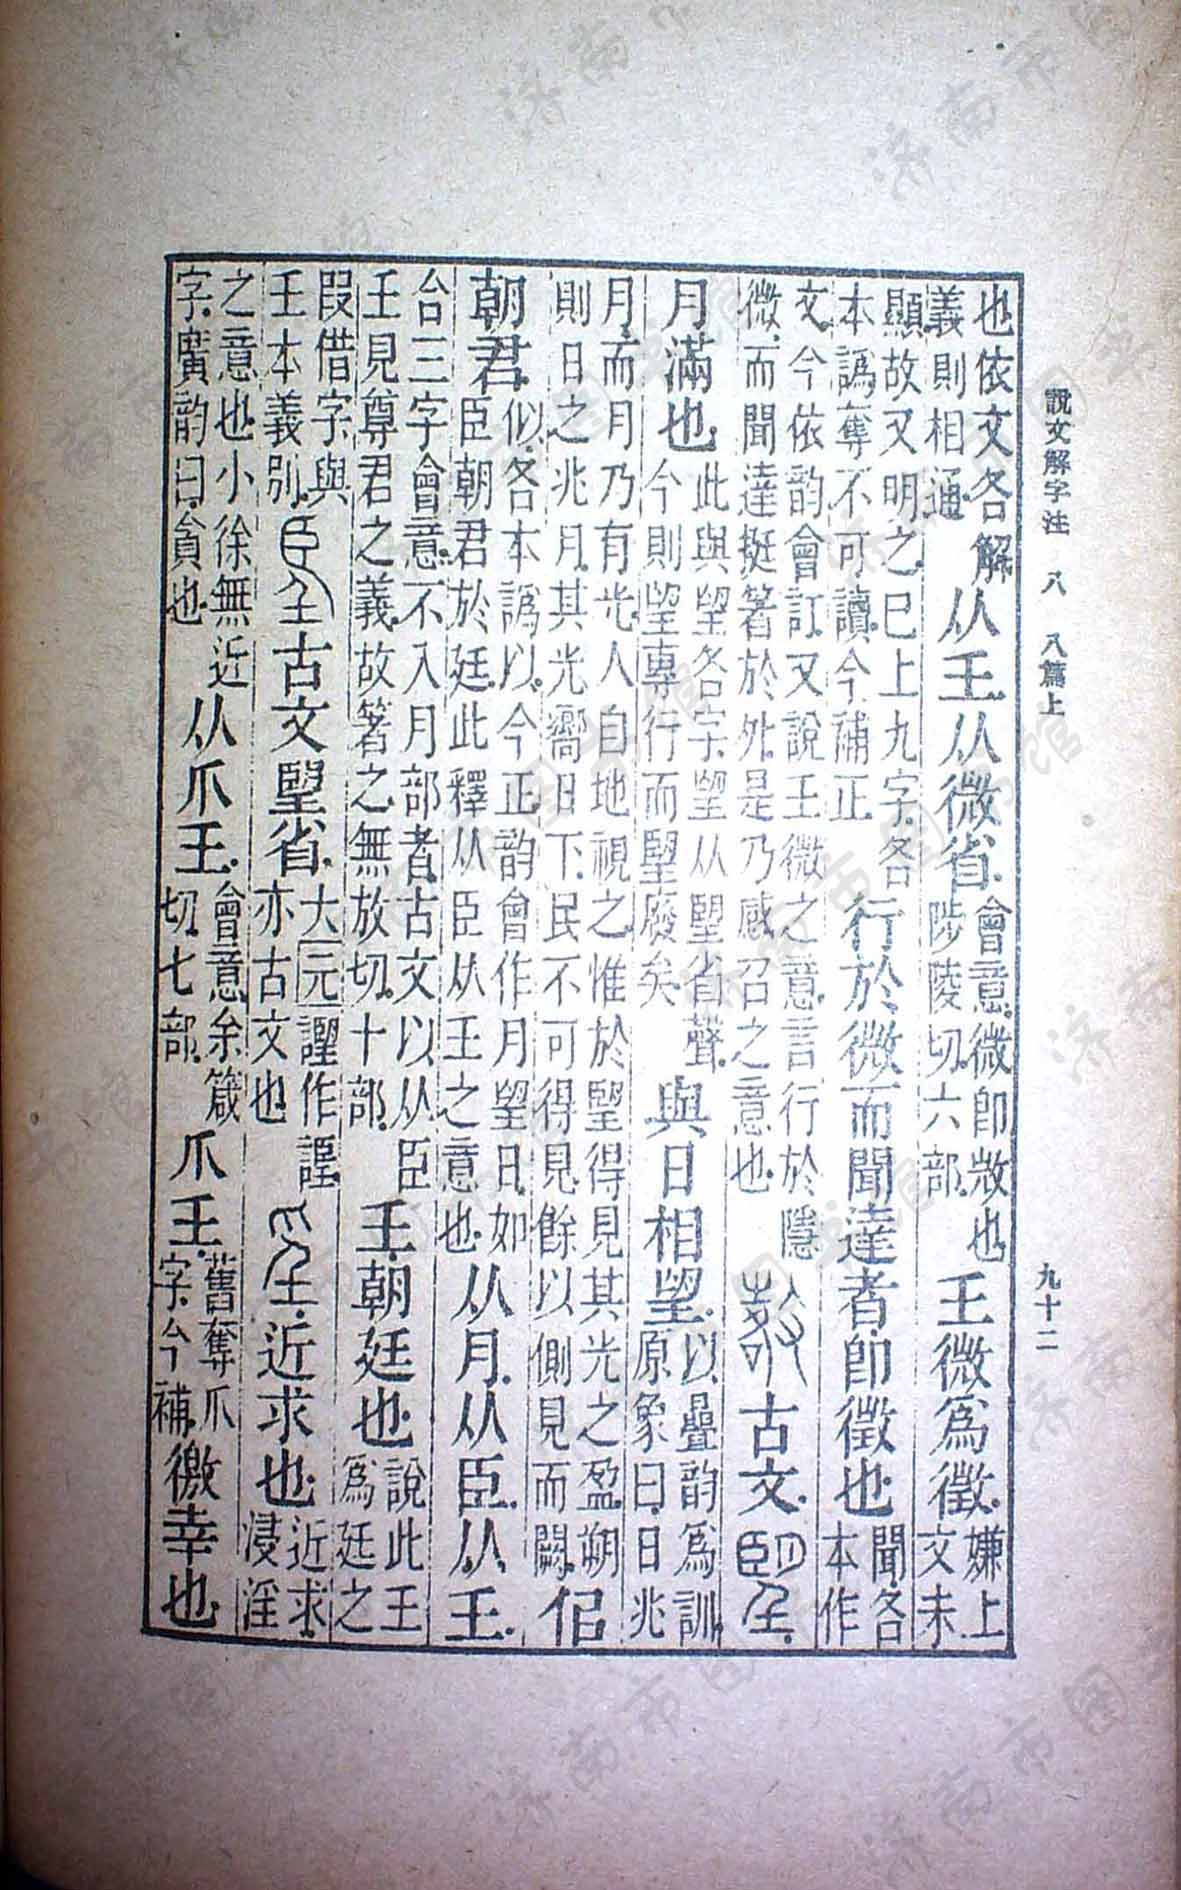 說文解字注 八 八篇上 九十二
也依文各解義則相通从𡈼从微省會意微卽㪣也陟陵切六部𡈼微爲徵嫌上文未
顯故又明之已上九字各本譌奪不可讀今補正行於微而聞達者卽徵也聞各本作
文今依韵會訂又說𡈼微之意言行於隱微而聞達挺箸於外是乃感召之意也古文
月滿也此與望各字望从朢省聲今則望專行而朢廢矣與日相望以疊韵爲訓原象曰日兆
月而月乃有光人自地視之惟於朢得見其光之盈朔則日之兆月其光嚮日下民不可得見餘以側見而闕佀
朝君佀各本譌以今正韵會作月望日如臣朝君於廷此釋从臣从𡈼之意也从月从臣从𡈼
合三字會意不入月部者古文以从臣𡈼見尊君之義故箸之無放切十部𡈼朝廷也說此𡈼爲廷之
叚借字與𡈼本義別古文朢省大元作亦古文也近求也近求浸淫
之意也小徐無近字廣韵曰貪也从爪𡈼會意余箴切七部爪𡈼舊奪爪字今補徼幸也
济南市图书馆